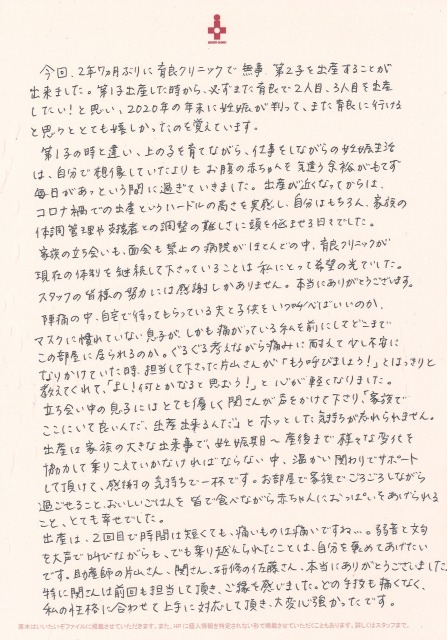 今回、2年7ヵ月ぶりに育良クリニックで無事、第2子を出産することが
出来ました。第1子出産した時から、必ずまた育良で2人目、3人目を出産
したい！と思い、2020年の年末に妊娠が判って、また育良に行ける
と思うととても嬉しかったのを覚えています。
第1子の時と違い、上の子を育てながら、仕事をしながらの妊娠生活
は、自分で想像していたよりもお腹の赤ちゃんを気遣う余裕がもてず
毎日があっという間に過ぎていきました。出産が近くなってからは、
コロナ禍での出産というハードルの高さを実感し、自分はもちろん、家族の
体調管理や支援者との調整の難しさに頭を悩ませる日々でした。
家族の立ち会いも、面会も禁止の病院がほとんどの中、育良クリニックが
現在の体制を継続して下さっていることは私にとって希望の光でした。
スタッフの皆様の努力には感謝しかありません。本当にありがとうございます。
陣痛の中、自宅で待ってもらっている夫と子供をいつ呼べばいいのか、
マスクに慣れていない息子が、しかも痛がっている私を前にしてどこまで
この部屋に居られるのか。ぐるぐる考えながら痛みに耐えて少し不安に
なりかけていた時、担当して下さった片山さんが「もう呼びましょう！」とはっきりと
教えてくれて、「よし！何とかなると思おう！」と心が軽くなりました。
立ち会い中の息子にはとても優しく関さんが声をかけて下さり、「家族で
ここにいて良いんだ、出産出来るんだ」とホッとした気持ちが忘れられません。
出産は家族の大きな出来事で、妊娠期〜産後まで様々な変化を
協力して乗りこえていかなければならない中、温かい関わりでサポート
して頂けて、感謝の気持ちで一杯です。お部屋で家族でごろごろしながら
過ごせること、おいしいごはんを皆で食べながら赤ちゃんにおっぱいをあげられる
こと、とても幸せでした。
出産は、2回目で時間は短くても、痛いものは痛いですね…。弱音と文句
を大声で叫びながらも、でも乗り越えられたことは、自分を褒めてあげたい
です。助産師の片山さん、関さん、研修の佐藤さん、本当にありがとうございました。
特に関さんは前回も担当して頂き、ご縁を感じました。どの手技も痛くなく、
私の性格に合わせて上手に対応して頂き、大変心強かったです。
薫木はいいたいぞファイルに掲載させていただきます。また、HPに個人情報を特定されない形で掲載させていただくこともあります。詳しくはスタッフまで。